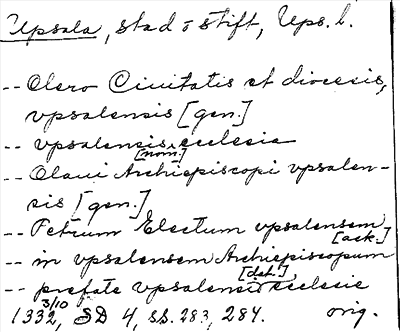 Upsala, stad o stift, Ups. l.
-- Clero Ciuitatis et diocesis,
vpsalensis [gen.]
-- vpsalensis ecclesia
[nom.]
-- Olaui Archiepiscopi vpsalen-
sis [gen.]
-- Petrum Electum vpsalensem
[ack.]
-- in vpsalensem Archiepiscopum
[dat.]
-- prefate vpsalensis ecclesie
1332, 3/10 SD 4, ss. 283, 284. orig.